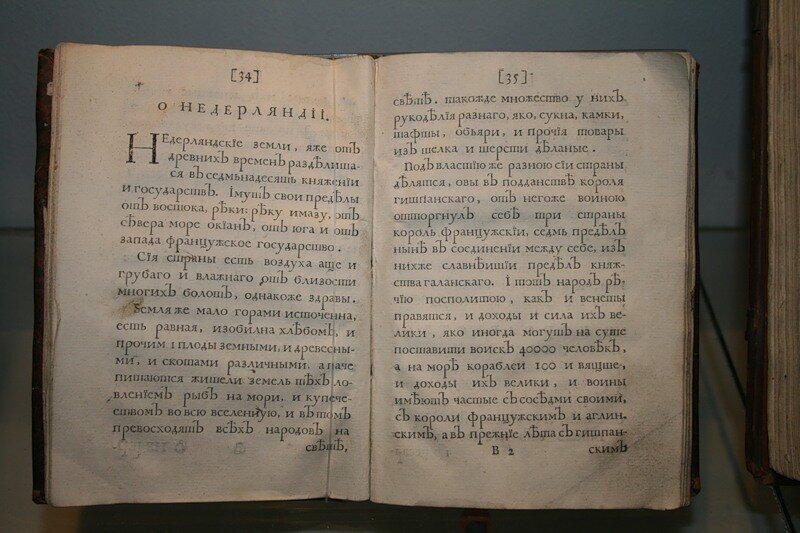 [34]
О НЕДЕРЛЯНДІІ.
НЕдерляндскіе земли, яже отъ
древнихъ временъ раздѣлиша-
ся въ седмьнадесять княженіи
и государствъ. Імутъ свои предѣлы
отъ востюка, рѣки: рѣку имазу, отъ
сѣвера море окіанъ, отъ юга и отъ
запада французское государство.
Сія страны есть воздуха аще и
грубаго и влажнаго отъ близости
многихъ болотъ, однакоже здравы.
Земля же мало горами источенна,
есть равная, изобилна хлѣбомъ, и
прочим і плоды земными, и древесны-
ми, и скотами различными, а паче
питаются жители земель тѣхъ ло-
вленіемъ рыбъ на мори, и купече-
ствомъ во всю вселенную, и въ томъ
превосходятъ всѣхъ народовъ на
свѣтѣ,
[35]
свѣтѣ. такожде множество у нихъ
рукодѣлія разнаго, яко, сукна, камки,
тафты, обьяри, и прочія товары
изъ шелка и шерсти дѣланые.
Подъ властію же разною сіи страны
дѣлятся, овы въ подданствѣ короля
гишпанскаго, отъ негоже воиною
отторгнулъ себѣ три страны
король французскіи, седмь предѣлъ
нынѣ въ соединеніи между себе, изъ
нихже славнѣишіи предѣлъ княж-
ства галанскаго. І тотъ народъ рѣ-
чію посполитою, какъ и венеты
правятся, и доходы и сила ихъ ве-
лики, яко иногда могутъ на суше
поставити воискъ 40000 человѣкъ,
а на морѣ кораблеи 100 и вящше,
и доходы ихъ велики, и воины
имѣютъ частые съ сосѣдми своими,
съ короли французскимъ и аглин-
скимъ, а въ прежніе лѣта съ гишпан-
В 2 скимъ